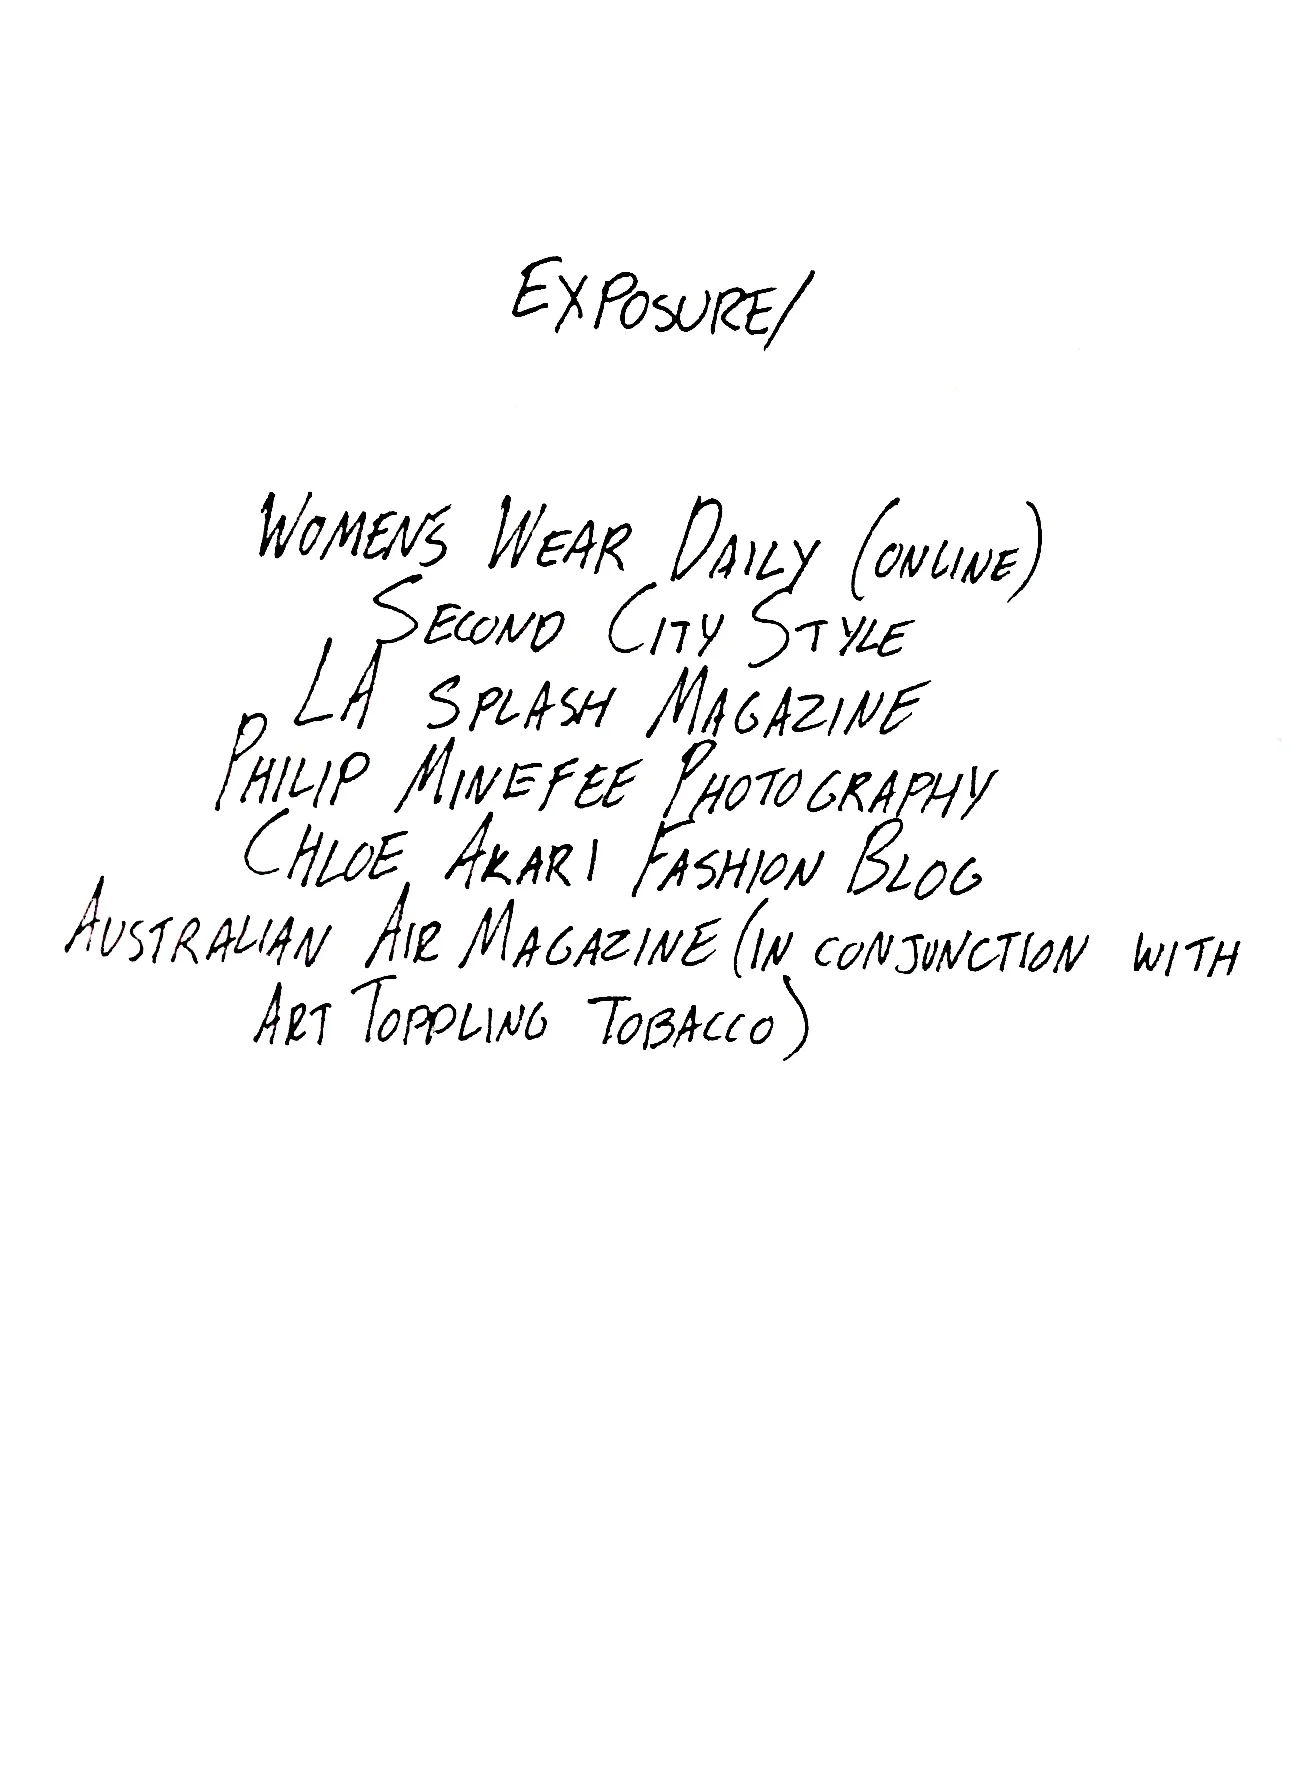 EXPOSURE/
WOMEN'S WEAR DAILY (ONLINE)
SECOND CITY STYLE
LA SPLASH MAGAZINE
PHILIP MINEFEE PHOTOGRAPHY
CHLOE AKARI FASHION BLOG
AUSTRALIAN AIR MAGAZINE (IN CONJUNCTION WITH
ART TOPPLING TOBACCO)